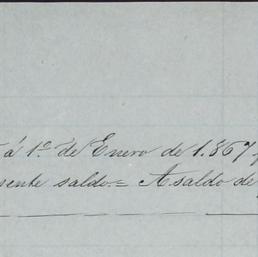 á 1º de Enero de 1.867
sente saldo.= A saldo de